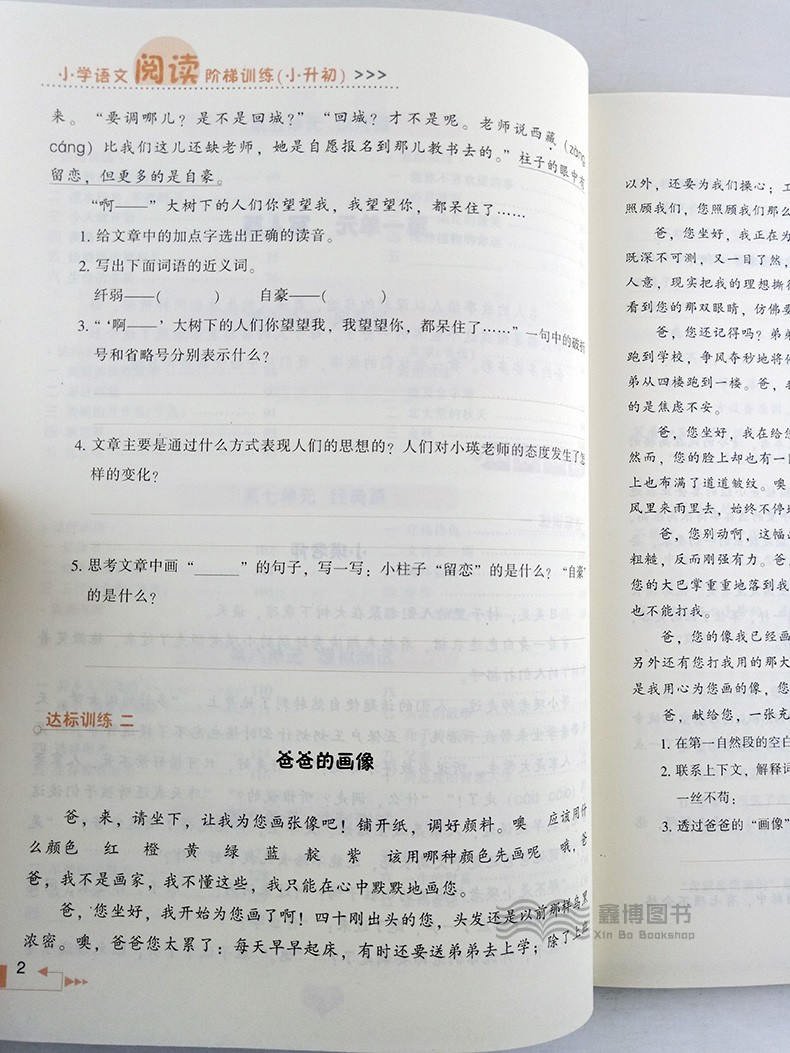 小学语文阅读阶梯训练(小升初) >>>
来。“要调哪儿？是不是回城？”“回城？才不是呢。老师说西藏（zàng
cáng）比我们这儿还缺老师，她是自愿报名到那儿教书去的。”柱子的眼中有
留恋，但更多的是自豪。
“啊——”大树下的人们你望望我，我望望你，都呆住了……
1. 给文章中的加点字选出正确的读音。
2. 写出下面词语的近义词。
纤弱——(　　　) 自豪——(　　　)
3. “‘啊——’大树下的人们你望望我，我望望你，都呆住了……”一句中的破折
号和省略号分别表示什么？
4. 文章主要是通过什么方式表现人们的思想的？人们对小瑛老师的态度发生了怎
样的变化？
5. 思考文章中画“______”的句子，写一写：小柱子“留恋”的是什么？“自豪”
的是什么？
达标训练 二
爸爸的画像
爸，来，请坐下，让我为您画张像吧！铺开纸，调好颜料。噢 应该用什
么颜色 红 橙 黄 绿 蓝 靛 紫 该用哪种颜色先画呢 哦，爸
爸，我不是画家，我不懂这些，我只能在心中默默地画您。
爸，您坐好，我开始为您画了啊！四十刚出头的您，头发还是以前那样乌黑
浓密。噢，爸爸您太累了：每天早早起床，有时还要送弟弟去上学；除了上班
2
以外，还要为我们操心；工
照顾我们，您照顾我们那么
爸，您坐好，我正在为
既深不可测，又一目了然，
人意，现实把我的理想撕得
看到您的那双眼睛，仿佛要
爸，您还记得吗？弟弟
跑到学校，争风夺秒地将他
弟从四楼跑到一楼。爸，我
的是焦虑不安。
爸，您坐好，我在给您
然而，您的脸上却也有一
上也布满了道道皱纹。噢
风里来雨里去，始终不停地
爸，您别动啊，这幅
粗糙，反而刚强有力。爸，
您的大巴掌重重地落到我
也不能打我。
爸，您的像我已经画
另外还有您打我用的那大
是我用心为您画的像，您
爸，献给您，一张充
1. 在第一自然段的空白
2. 联系上下文，解释词
一丝不苟：
3. 透过爸爸的“画像”
鑫博图书
Xin Bo Bookshop